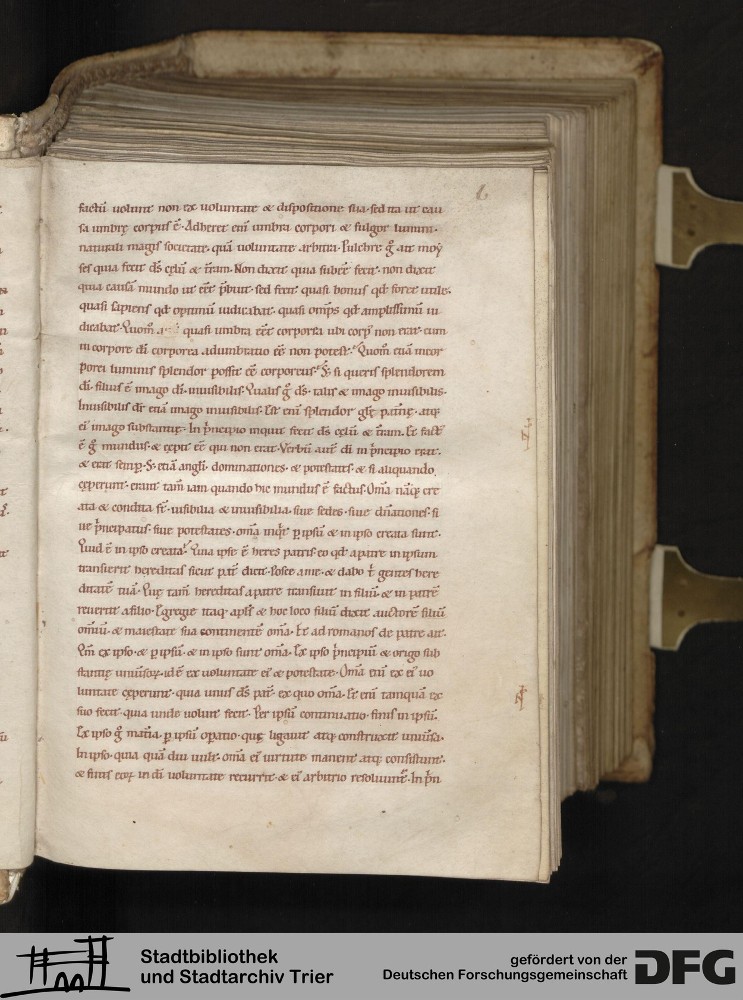 6
factū uolunt non ex uoluntate & dispositione sua. sed ita ut cau
sa umbrę corpus ē. Adheret eni umbra corpori & fulgor lumini.
naturali magis societate. quā uoluntate arbitra. Pulchre g̊ ait moy
ses quia fecit ds̄ cęlū & t̄ram. Non dixit quia subēe fecit. non dixit
quia causā mundo ut eēt p̄buit. sed fecit quasi bonus qd̄ foret utile.
quasi sapiens qd̄ optimū iudicabat. quasi omp̄s qd̄ amplissimū ui
debat. Quom̄ quasi umbra eēt corporea ubi corp' non erat. cum
in corpore di corporea adumbratio eē non potest. Quom̄ etiā incor
porei luminis splendor possit eē corporeus. S; si queris splendorem
di. filius ē imago di. inuisibilis. Qualis g̊ ds̄. talis & imago inuisibilis.
Inuisibilis di etiā imago inuisibilis. Est enī splendor glę patnę. atq;
ei' imago substantię. In p̄ncipio inquit fecit ds̄ cęlū & t̄ram. Et fact'
ē g̊ mundus. & cępit eē qui non erat. Verbū aut di in p̄ncipio erat.
& erat semp. S; etiā angli. dominationes. & potestates. & si aliquando
cęperunt. erant tam̄ iam quando hic mundus ē factus. Om̄a nāq; cre
ata & condita st̄. uisibilia & inuisibilia. siue sedes. siue dn̄ationes. si
ue p̄ncipatus. siue potestates. om̄a inqt p ipsū & in ipso creata sunt.
Quid ē in ipso creata. Quia ipse ē heres patris. eo qd̄ a patre in ipsum
transierit hereditas sicut pat̄ dicit. Posce a me. & dabo t̄ gentes here
ditatē tuā. Quę tam̄ hereditas a patre transiuit in filiū. & in patrē
reuertit a filio. Egregie itaq; apls & hoc loco filiū dixit auctorē filiū
omiū. & maiestate sua continentē om̄a. Et ad romanos de patre ait.
Qm̄ ex ipso. & p ipsū. & in ipso sunt om̄a. Ex ipso p̄ncipiū & origo sub
stantię uniusoꝝ. id ē ex uoluntate ei' & potestate. Om̄a enī ex ei' uo
luntate cęperunt. quia unus ds̄ pat̄. ex quo om̄a. Et enī tanquā ex
suo fecit. quia unde uoluit fecit. Per ipsū continuatio. finis in ipsū.
Ex ipso g̊ mat̄ia. p ipsū opatio. quę ligauit atq; construxit uniūsa.
In ipso. quia quā diu uult. om̄a ei' uirtute manent atq; consistunt.
& finis eoꝝ in di uoluntate recurrit. & ei' arbitrio resoluunt. In p̄n
Stadtbibliothek
und Stadtarchiv Trier
gefördert von der
Deutschen Forschungsgemeinschaft
DFG